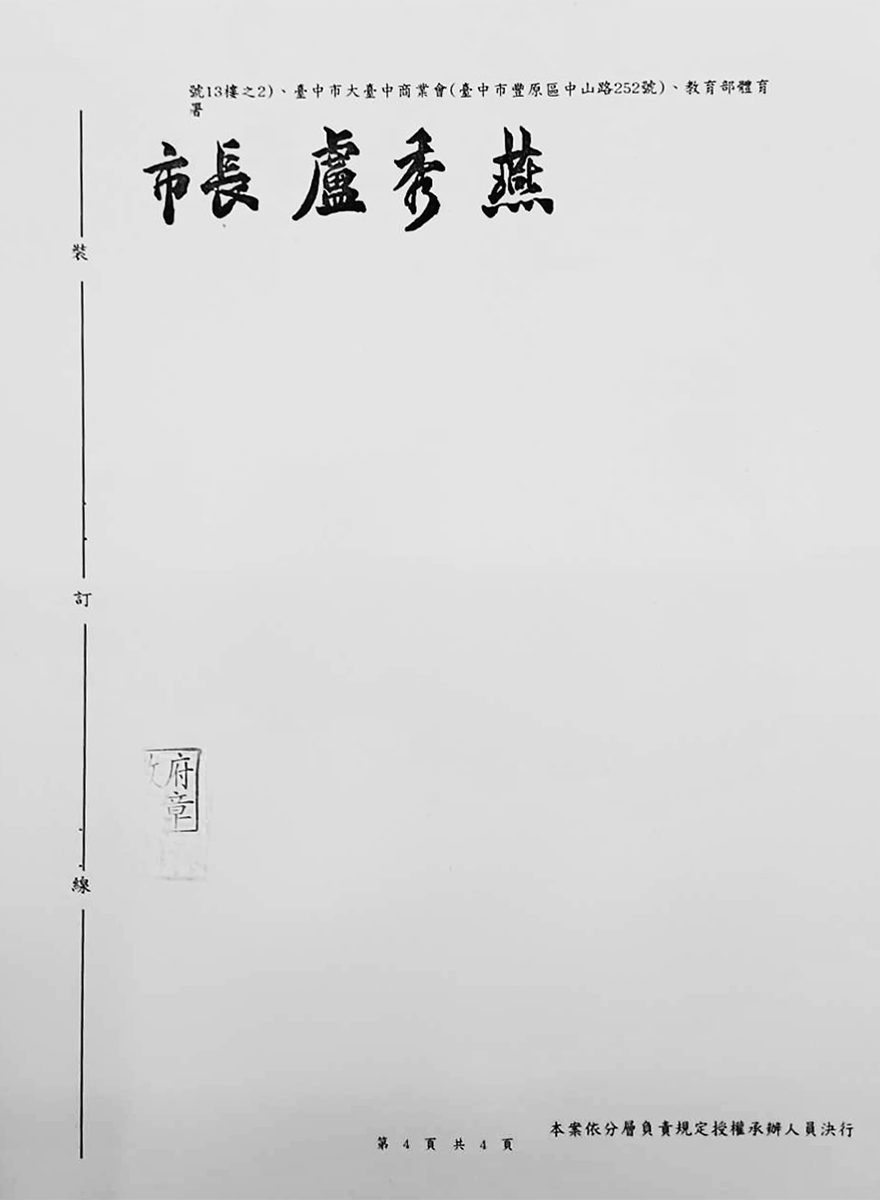 號13樓之2)、臺中市大臺中商業會(臺中市豐原區中山路252號)、教育部體育
署
市長 盧秀燕
裝
訂
府章
線
本案依分層負責規定授權承辦人員決行
第 4 頁 共 4 頁